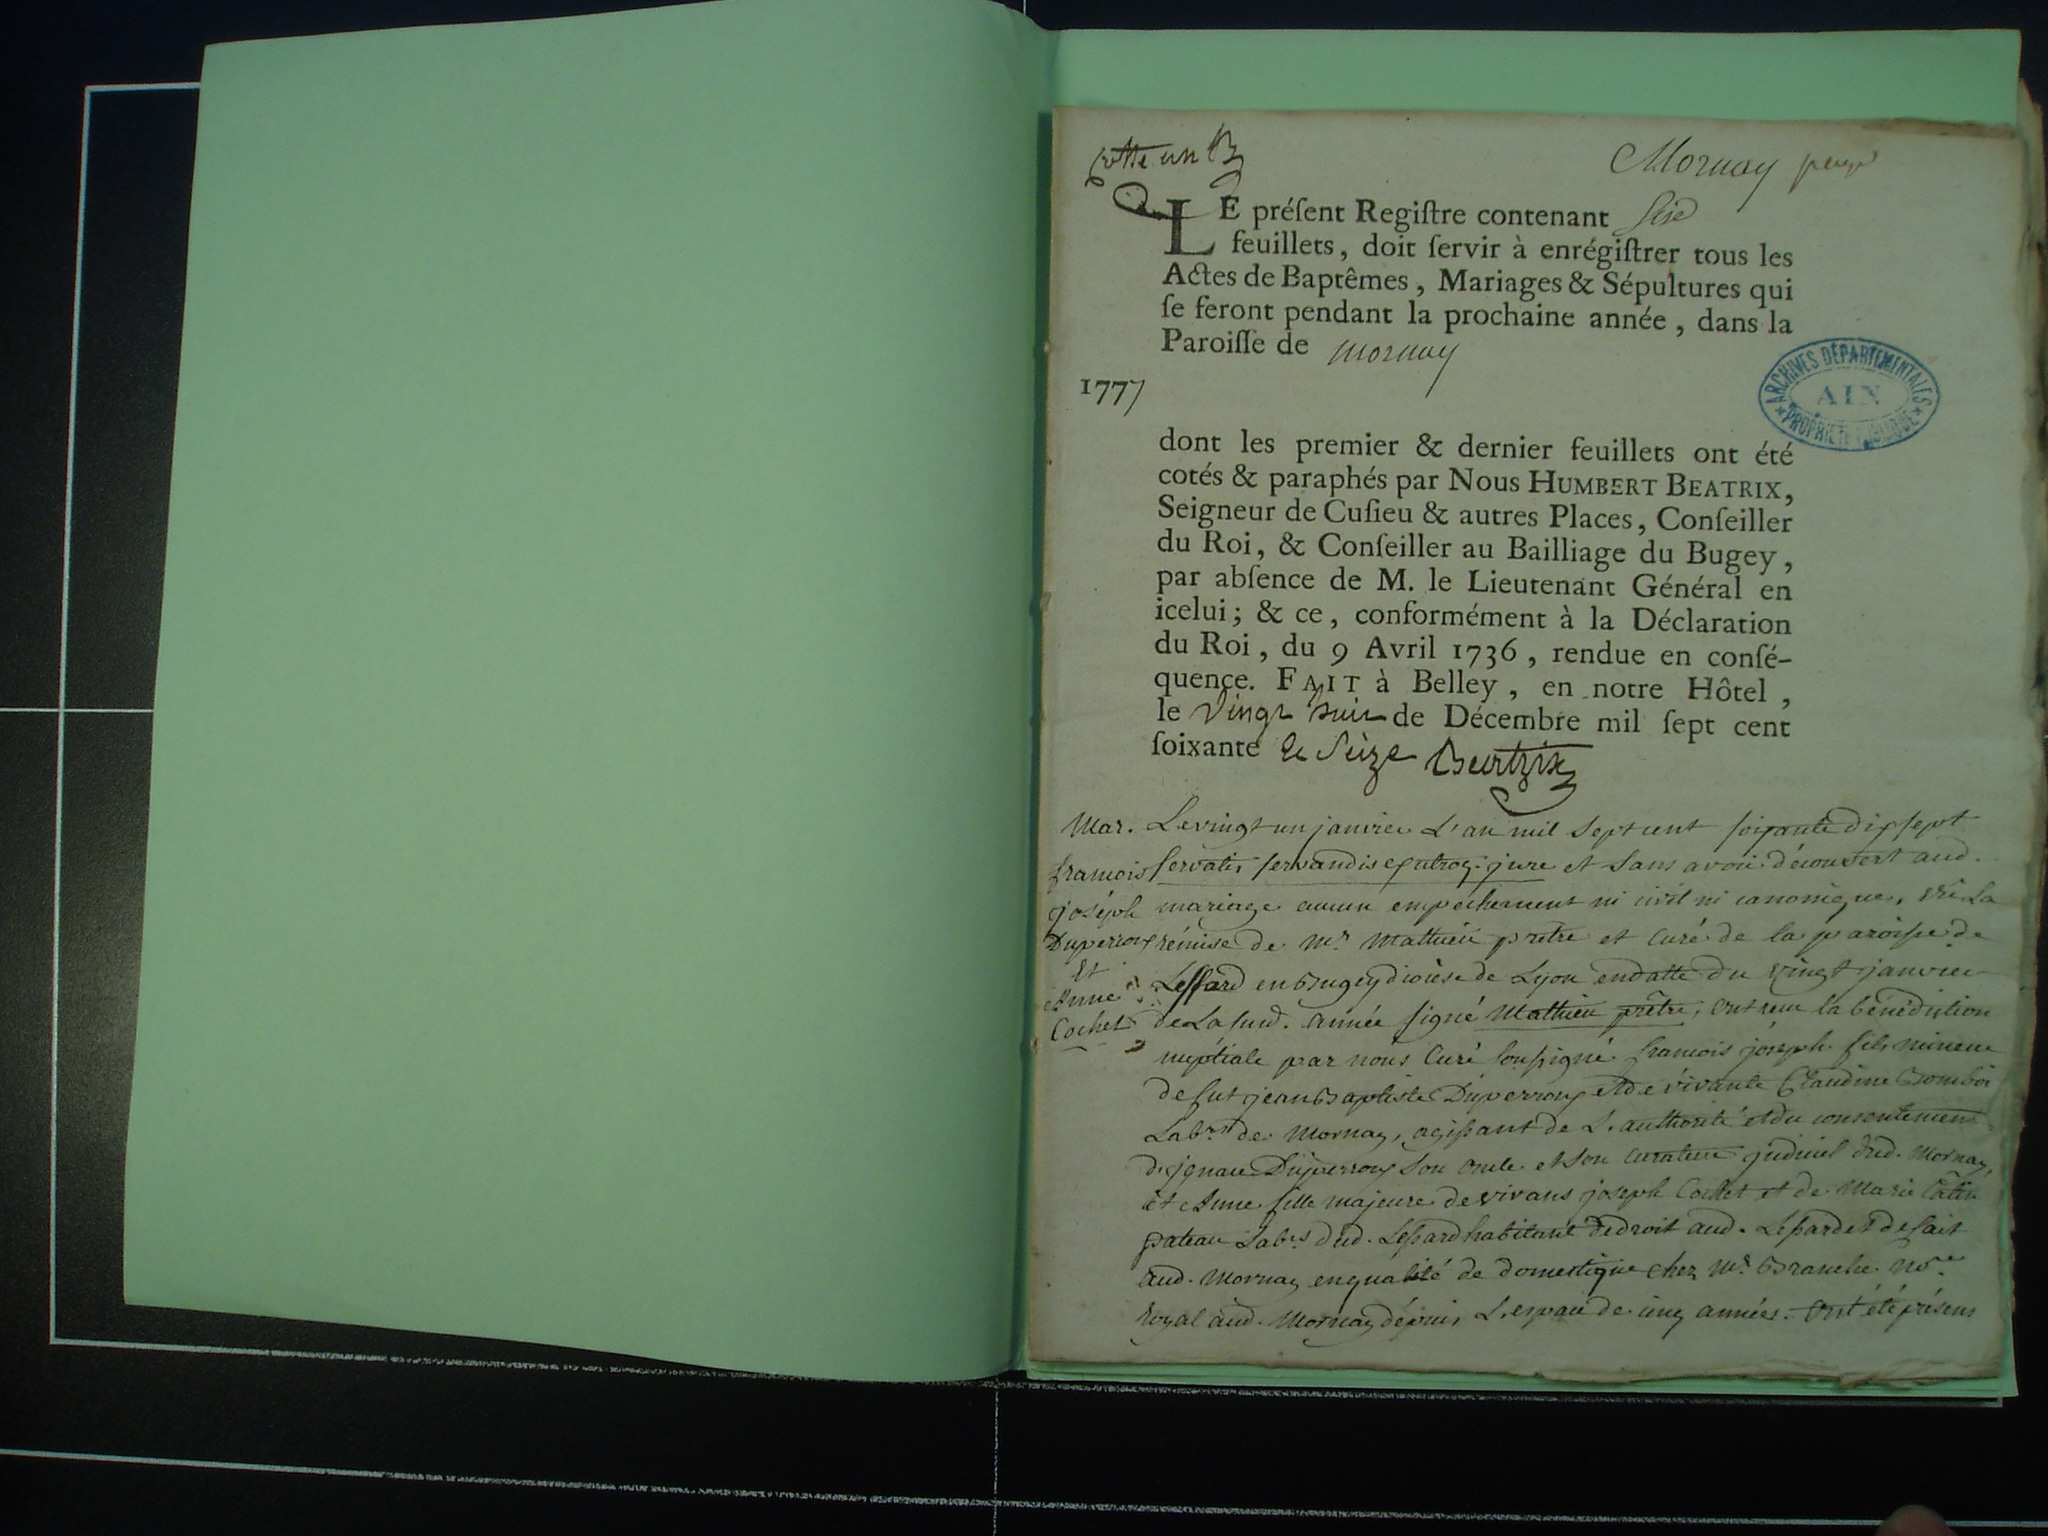 Cotte un B
Mornay
LE préſent Regiſtre contenant Sise
feuillets, doit ſervir à enrégiſtrer tous les
Actes de Baptêmes, Mariages & Sépultures qui
ſe feront pendant la prochaine année, dans la
Paroiſſe de mornay
1777
ARCHIVES DÉPARTEMENTALES
AIN
PROPRIÉTÉ PUBLIQUE
dont les premier & dernier feuillets ont été
cotés & paraphés par Nous HUMBERT BEATRIX,
Seigneur de Cuſieu & autres Places, Conſeiller
du Roi, & Conſeiller au Bailliage du Bugey,
par abſence de M. le Lieutenant Général en
icelui; & ce, conformément à la Déclaration
du Roi, du 9 Avril 1736, rendue en conſé-
quence. FAIT à Belley, en notre Hôtel,
le Vingt huit de Décembre mil ſept cent
ſoixante et Seize Beatrix
Mar.
francois
joséph
Duperroux
Et
Anne
Cochet
Le vingt un janvier L'an mil Sept cent soixante dix sept
servatis servandis jure et sans avoir découvert aud.
mariage aucun empechement ni civil ni canonique, vû La
rémise de mr. Mathieu prêtre et curé de la paroisse de
Lessard en Bugey diocèse de Lyon en datte du vingt janvier
de La susd. année signé Mathieu prêtre, ont reçu la bénédiction
nuptiale par nous Curé soussigné francois joséph fils mineur
de fut jean Baptiste Duperroux et de vivante Claudine
Labrs. de Mornay, agissant de L'authorité et du consentement
d'ignace Duperroux son oncle et son curateur judiciel dud. Mornay,
et Anne fille majeure de vivans joseph Cochet et de Marie
Labrs. dud. Lessard habitant de droit aud. Lessard et de fait
aud. Mornay en qualité de domestique chez Mr. Branche nore.
Royal aud. Mornay dépuis L'espace de cinq années. Ont été présens